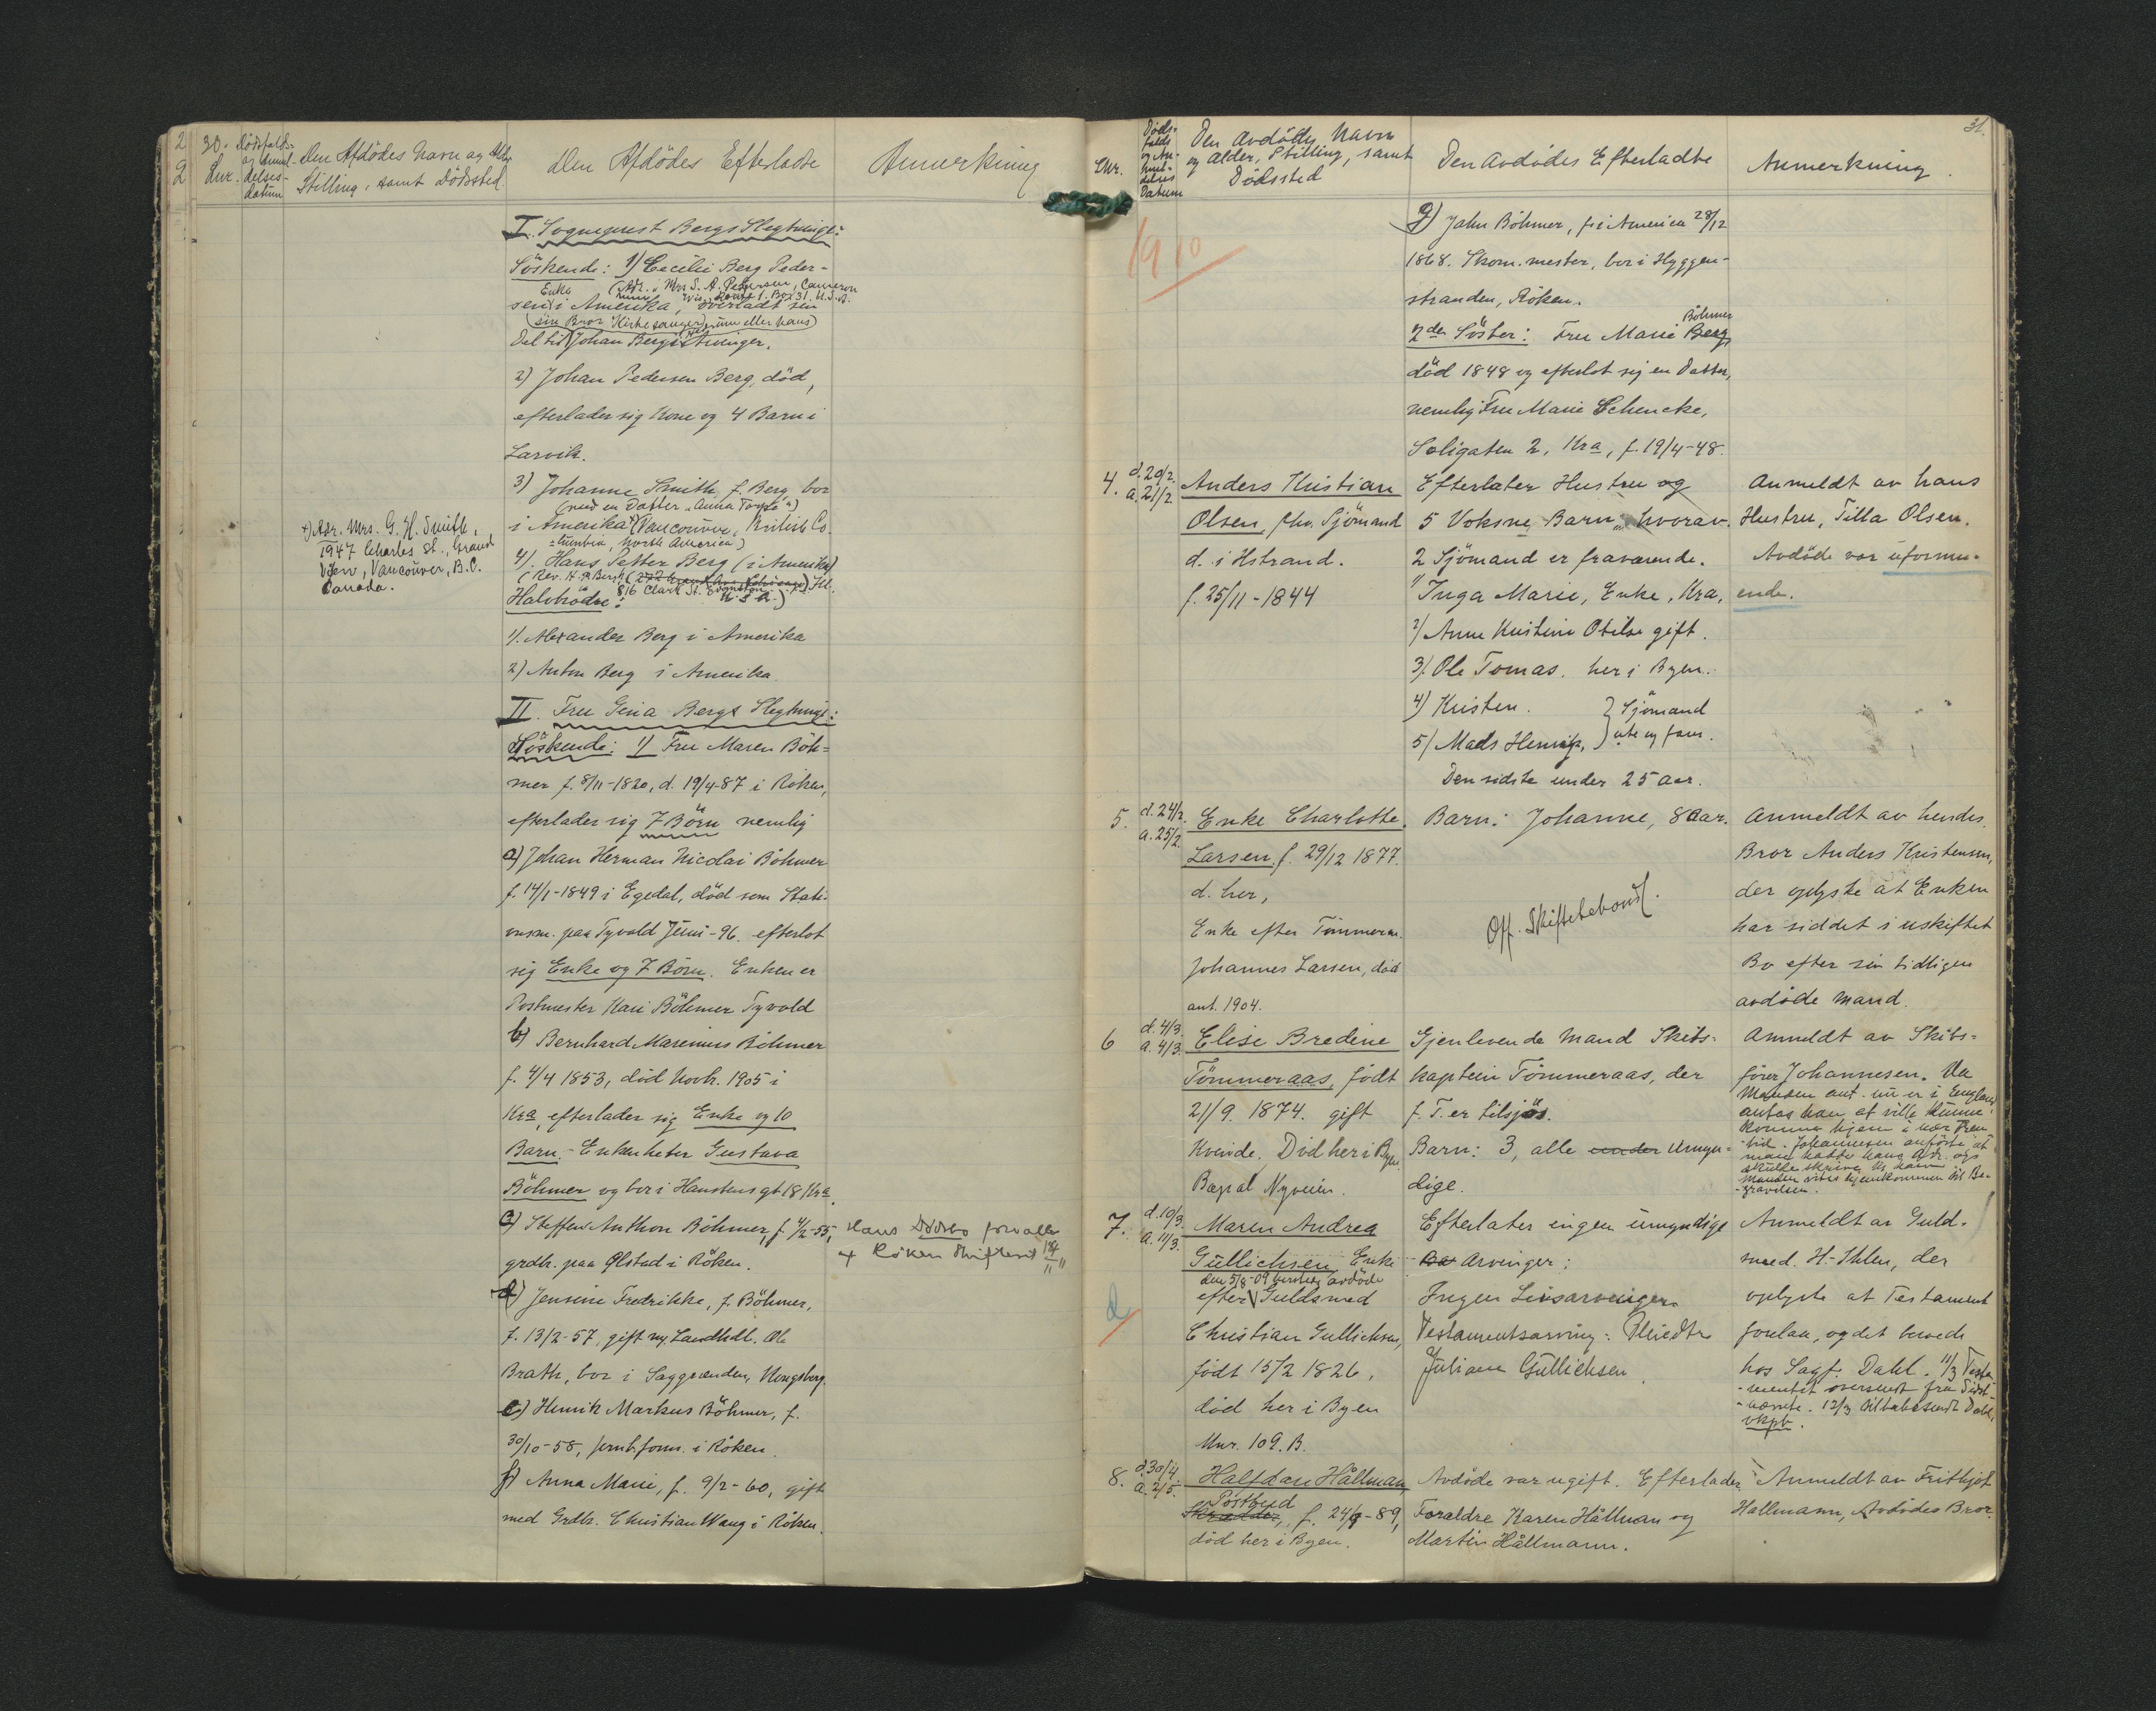 30.
Lnr.
Dödsfalds-
og Anmel-
delses-
datum
Den Afdödes Navn og Alder
Stilling, samt Dödssted.
Den Afdödes Efterladte
Anmerkning
I. Sogneprest Bergs Slegtninge:
Söskende: 1) Cecilie Berg Peder-
Enke (Adr. Mrs S. A. Pedersen, Cameron
Wis. Route 1. Box 31. U.S.A.
sen i Amerika, overladt sin
(sin Bror Kirkesanger eller hans)
Del til Johan Bergs Arvinger.
2) Johan Pedersen Berg, död,
efterlader sig Kone og 4 Barn i
Larvik.
3) Johanne Smith f. Berg, bor
(med en Datter "Anna Torpe")
i Amerika +) (Vancouver, British Co-
lumbia, North America)
4). Hans Petter Berg (i Amerika)
(Rev. H. P. Berg,
816 Clark St. Evanston
U.S.A.)
+) Adr. Mrs. G. H. Smith,
1947 Charles St., Grand
View, Vancouver, B.C.
Canada.
Halvbrödre:
1). Alexander Berg i Amerika
2) Anton Berg i Amerika
II. Fru Gina Bergs Slegtninge:
Söskende: 1) Fru Maren Böh-
mer f. 8/11-1820, d. 19/4-87 i Röken,
efterlader sig 7 Börn nemlig
a) Johan Herman Nicolai Böhmer
f. 14/1-1849 i Egedal, död som Stati-
onsm. paa Tyvold Juni -96. efterlot
sig Enke og 7 Börn. Enken er
Postmester Kari Böhmer Tyvold
b) Bernhard Marenius Böhmer
f. 4/4 1853, död Novb. 1905 i
Kra, efterlader sig Enke og 10
Barn. - Enken heter Gustava
Böhmer og bor i Haustensgt 18 Kra.
c) Steffen Anthon Böhmer, f. 4/2-55,
grdbr. paa Ølstad i Röken.
Hans Dödsbo
Röken Skifteret
d) Jensine Fredrikke, f. Böhmer,
f. 13/2-57, gift m. Landhdl. Ole
Brath, bor i Saggrenden, Kongsberg.
e) Henrik Markus Böhmer, f.
30/10-58, i Röken.
f) Anna Marie, f. 9/2-60, gift
med Grdbr. Christian Wang i Röken.
31.
Lnr.
Döds-
falds
og An-
mel-
delses
Datum
Den Avdödes Navn
og Alder, Stilling, samt
Dödssted
Den Avdödes Efterladte
Anmerkning.
1910
g) John Böhmer, f. i America 28/12
1868. Skom.mester, bor i Hyggen-
stranden, Röken.
2den Söster: Fru Marie Berg
Böhmer
död 1848 og efterlot sig en Datter,
nemlig Fru Marie Schencke,
Soligaten 2, Kra, f. 19/4-48.
4.
d. 20/2.
a. 21/2
Anders Kristian
Olsen, fhv. Sjömand
d. i Hstrand.
f. 25/11-1844
Efterlater Hustru og
5 Voksne Barn, hvorav
2 Sjömand er fraværende.
1) Inga Marie, Enke, Kra,
2) Anne Kristine Otilse gift.
3). Ole Tomas. her i Byen.
4) Kristen.
5) Mads Henrik,
} Sjömand
ute og farer.
Den sidste under 25 Aar.
Anmeldt av hans
Hustru, Tilla Olsen.
Avdöde var uformu-
ende.
5.
d. 24/2.
a. 25/2.
Enke Charlotte
Larsen f. 29/12 1877.
d. her,
Enke efter Tömmerm.
Johannes Larsen, död
ant. 1904.
Barn: Johanne, 8 Aar.
Off. Skiftebehandl.
Anmeldt av hendes
Bror Anders Kristensen,
der oplyste at Enken
har siddet i uskiftet
Bo efter sin tidligere
avdöde Mand.
6
d. 4/3.
a. 4/3.
Elise Bredine
Tömmeraas, födt
21/9. 1874. gift
Kvinde. Död her i Byen
Bapal Nyveien.
Gjenlevende Mand Skibs-
kaptein Tömmeraas, der
f. T. er tilsjös.
Barn: 3, alle under Umyn-
dige.
Anmeldt av Skibs-
förer Johannesen. Da
Manden ant. nu er i England
antas han at ville kunne
komme hjem i nær Frem-
tid. Johannesen anförte at
man hadde hans Adr. og
skulde skrive til ham
Manden vites hjemkommen til Be-
gravelsen.
7.
d. 10/3.
a. 11/3.
Maren Andrea
Gullichsen Enke
den 5/8-09 avdöde
efter Guldsmed
Christian Gullichsen,
födt 15/2 1826,
död her i Byen
Mnr. 109. B.
Efterlater ingen umyndige
Arvinger:
Ingen Livsarvinger.
Testamentsarving: Pleiedtr
Juliane Gullichsen
Anmeldt av Guld-
smed. H. Ihlen, der
oplyste at Testament
forelaa, og det beroede
hos Sagf. Dahl. 11/3 Testa-
mentet oversendt fra Sidst-
nævnte. 12/3 tilbakesendt Dahl,
vkpb.
8.
d. 30/4.
a. 2/5.
Halfdan Hållman,
Postbud
Skrædder, f. 24/9-89,
död her i Byen.
Avdöde var ugift. Efterlader
Foraldre Karen Hållman og
Martin Hållmann.
Anmeldt av Frithjof
Hallmann, Avdödes Bror.